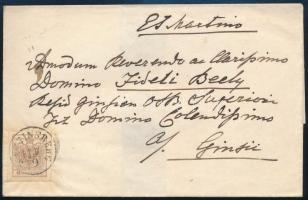 Et Martino
Admodum Reverendo ac Clarissimo
Domino Fideli Beely
Resid ginsien OSB. Superiori
Tit Domino Colendissimo
a/ Ginsii